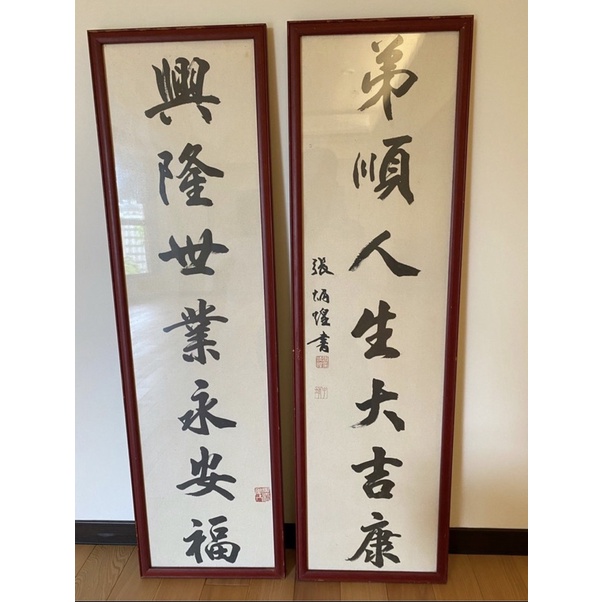 弟順人生大吉康
張炳煌書
興隆世業永安福